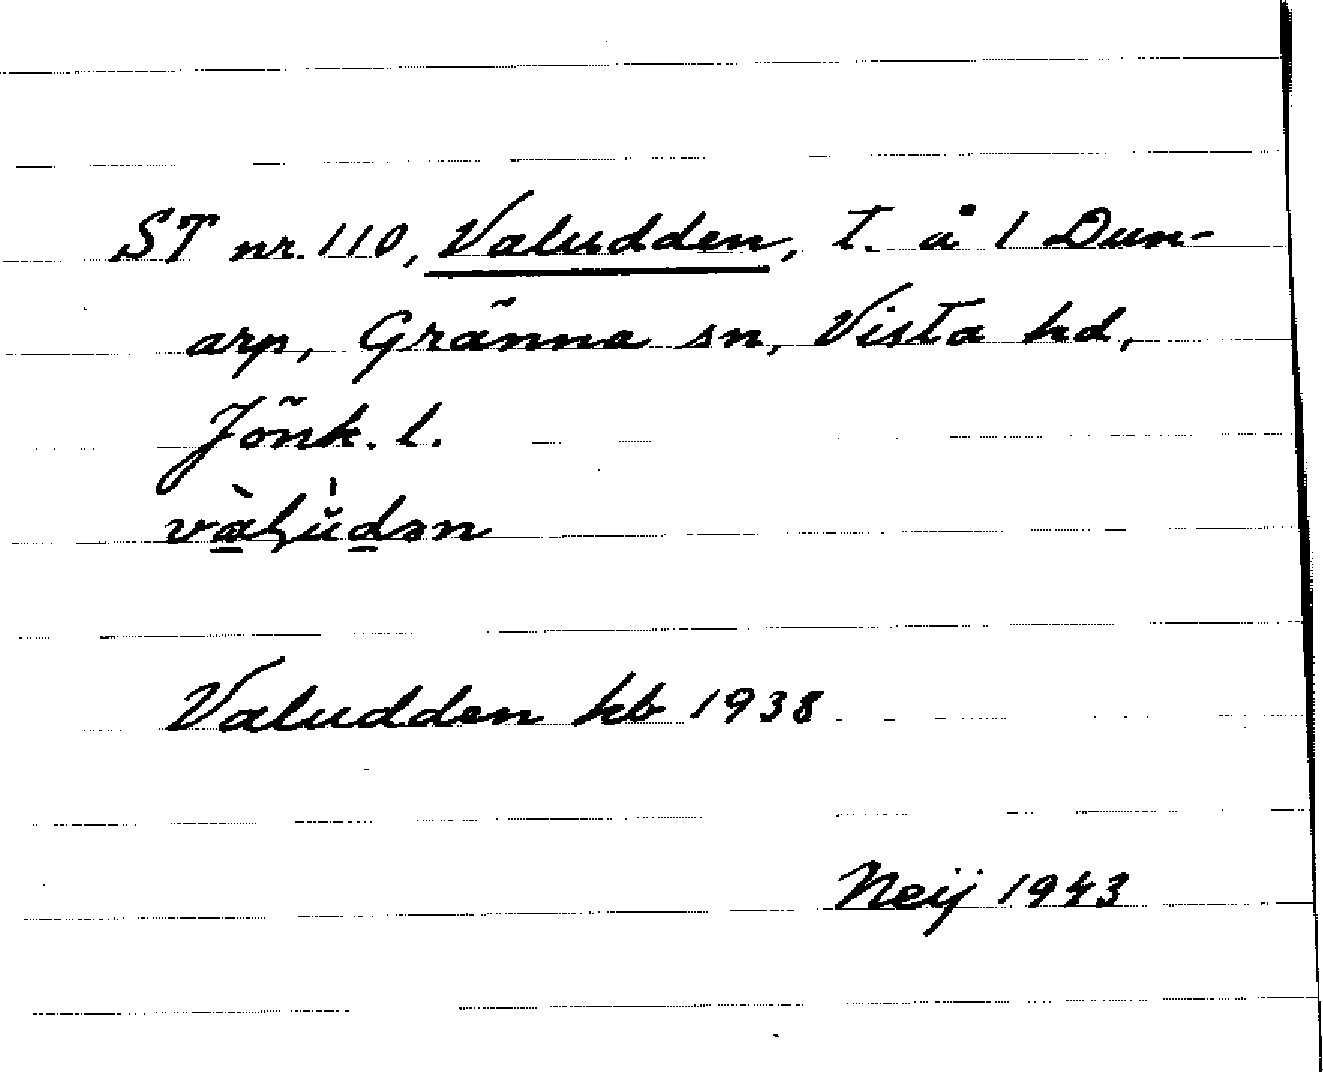 ST nr. 110, Valudden, t. å 1 Dun-
arp, Gränna sn, Vista hd,
Jönk. l.
Valudden kb 1938
Neij 1943